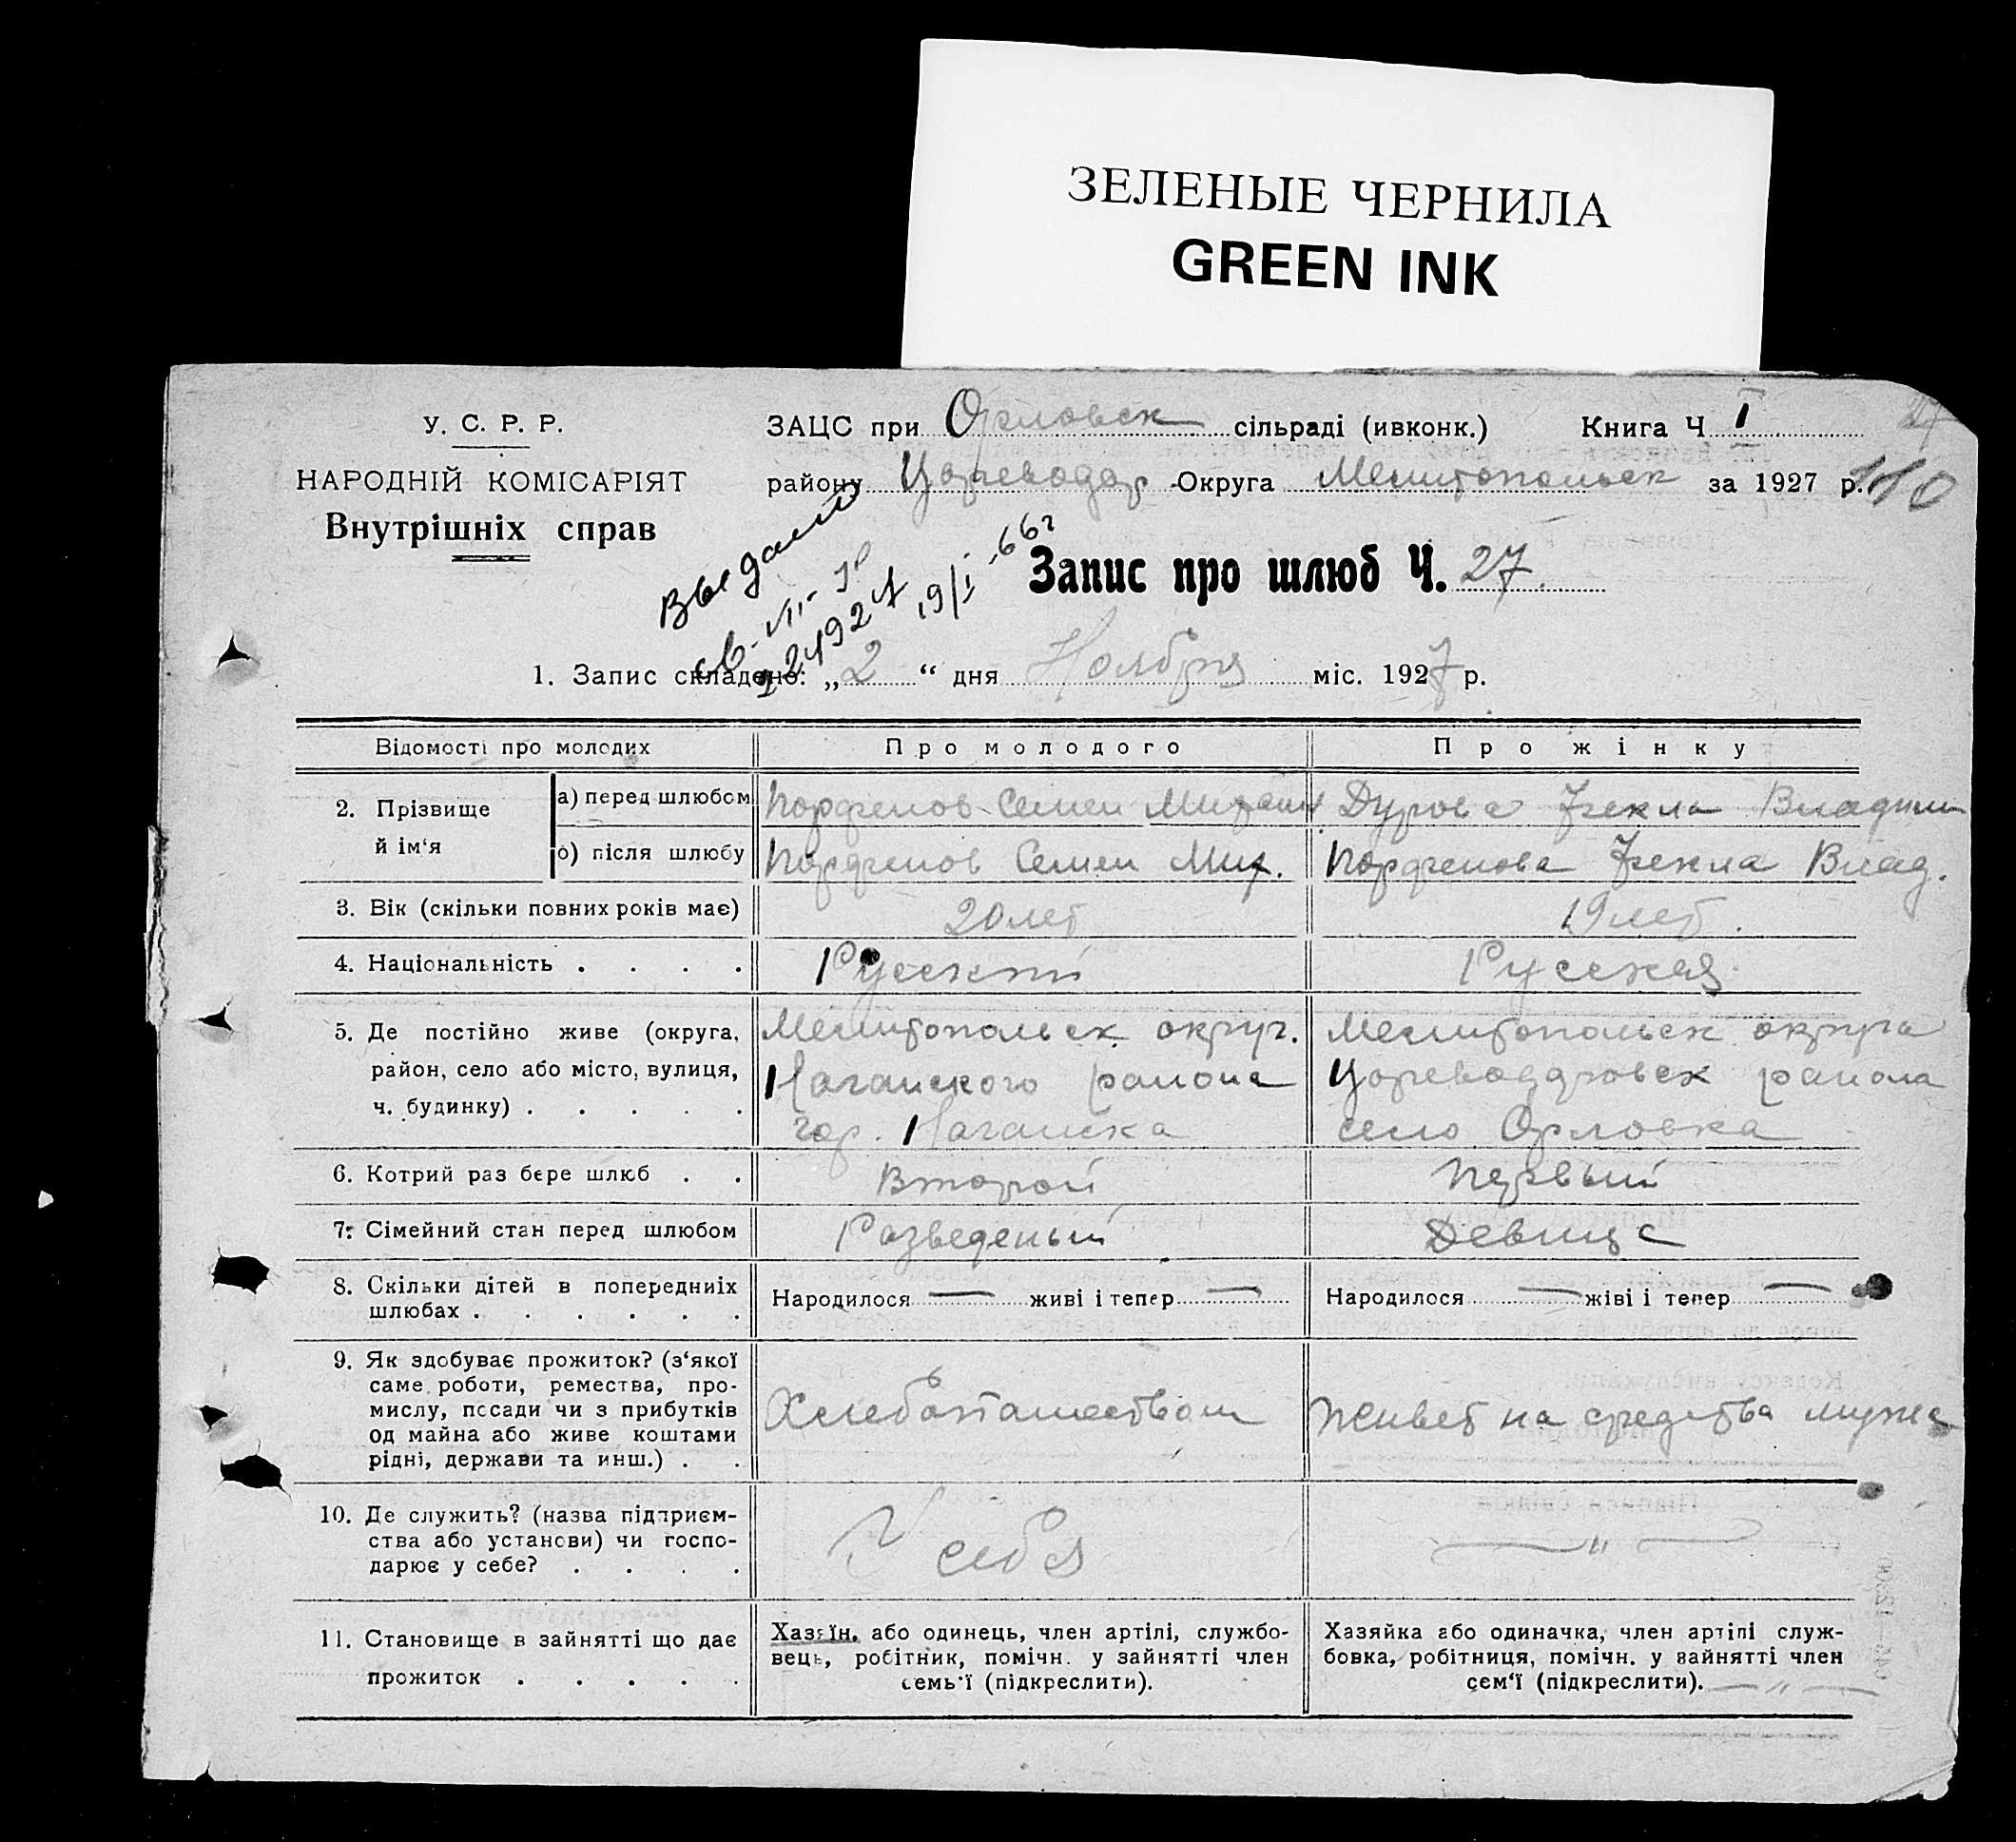 ЗЕЛЕНЫЕ ЧЕРНИЛА
GREEN INK
У. С. Р. Р.
НАРОДНІЙ КОМІСАРІЯТ
Внутрішніх справ
ЗАЦС при Орловск сільраді (ивконк.) Книга Ч I
району Округа Мелитопольск за 1927 р. 110
Выдано
19/I-66г
Запис про шлюб Ч. 27.
1. Запис складено: „2“ дня Ноября міс. 1927 р.
Відомості про молодих Про молодого Про жінку
2. Прізвище й ім‘я
а) перед шлюбом Парфенов Семен Дурова Фекла Владим
б) після шлюбу Парфенов Семен Мит. Парфенова Фекла Влад.
3. Вік (скільки повних років має) 20 лет 19 лет.
4. Національність . . . . Русский Русская
5. Де постійно живе (округа, Мелитопольск округ. Мелитопольск округа
район, село або місто, вулиця, Нагайского района района
ч. будинку) . . . . . гор. Нагайска село Орловка
6. Котрий раз бере шлюб . . Второй Первый
7. Сімейний стан перед шлюбом Разведеный Девица
8. Скільки дітей в попередниіх
шлюбах . . . . . . Народилося — живі і тепер — Народилося — жіві і тепер —
9. Як здобуває прожиток? (з‘якої
саме роботи, ремества, про-
мислу, посади чи з прибутків
од майна або живе коштами
рідні, держави та инш.) . .
Хлебопашеством Живет на средства мужа
10. Де служить? (назва підприєм-
ства або установи) чи госпо-
дарює у себе? . . . .
У себя — " —
11. Становище в зайнятті що дає
прожиток . . . . .
Хазяїн, або одинець, член артілі, службо-
вець, робітник, помічн. у зайнятті член
семь‘ї (підкреслити).
Хазяйка або одиначка, член артілі служ-
бовка, робітниця, помічн. у зайнятті член
сем‘ї (підкреслити). — " —